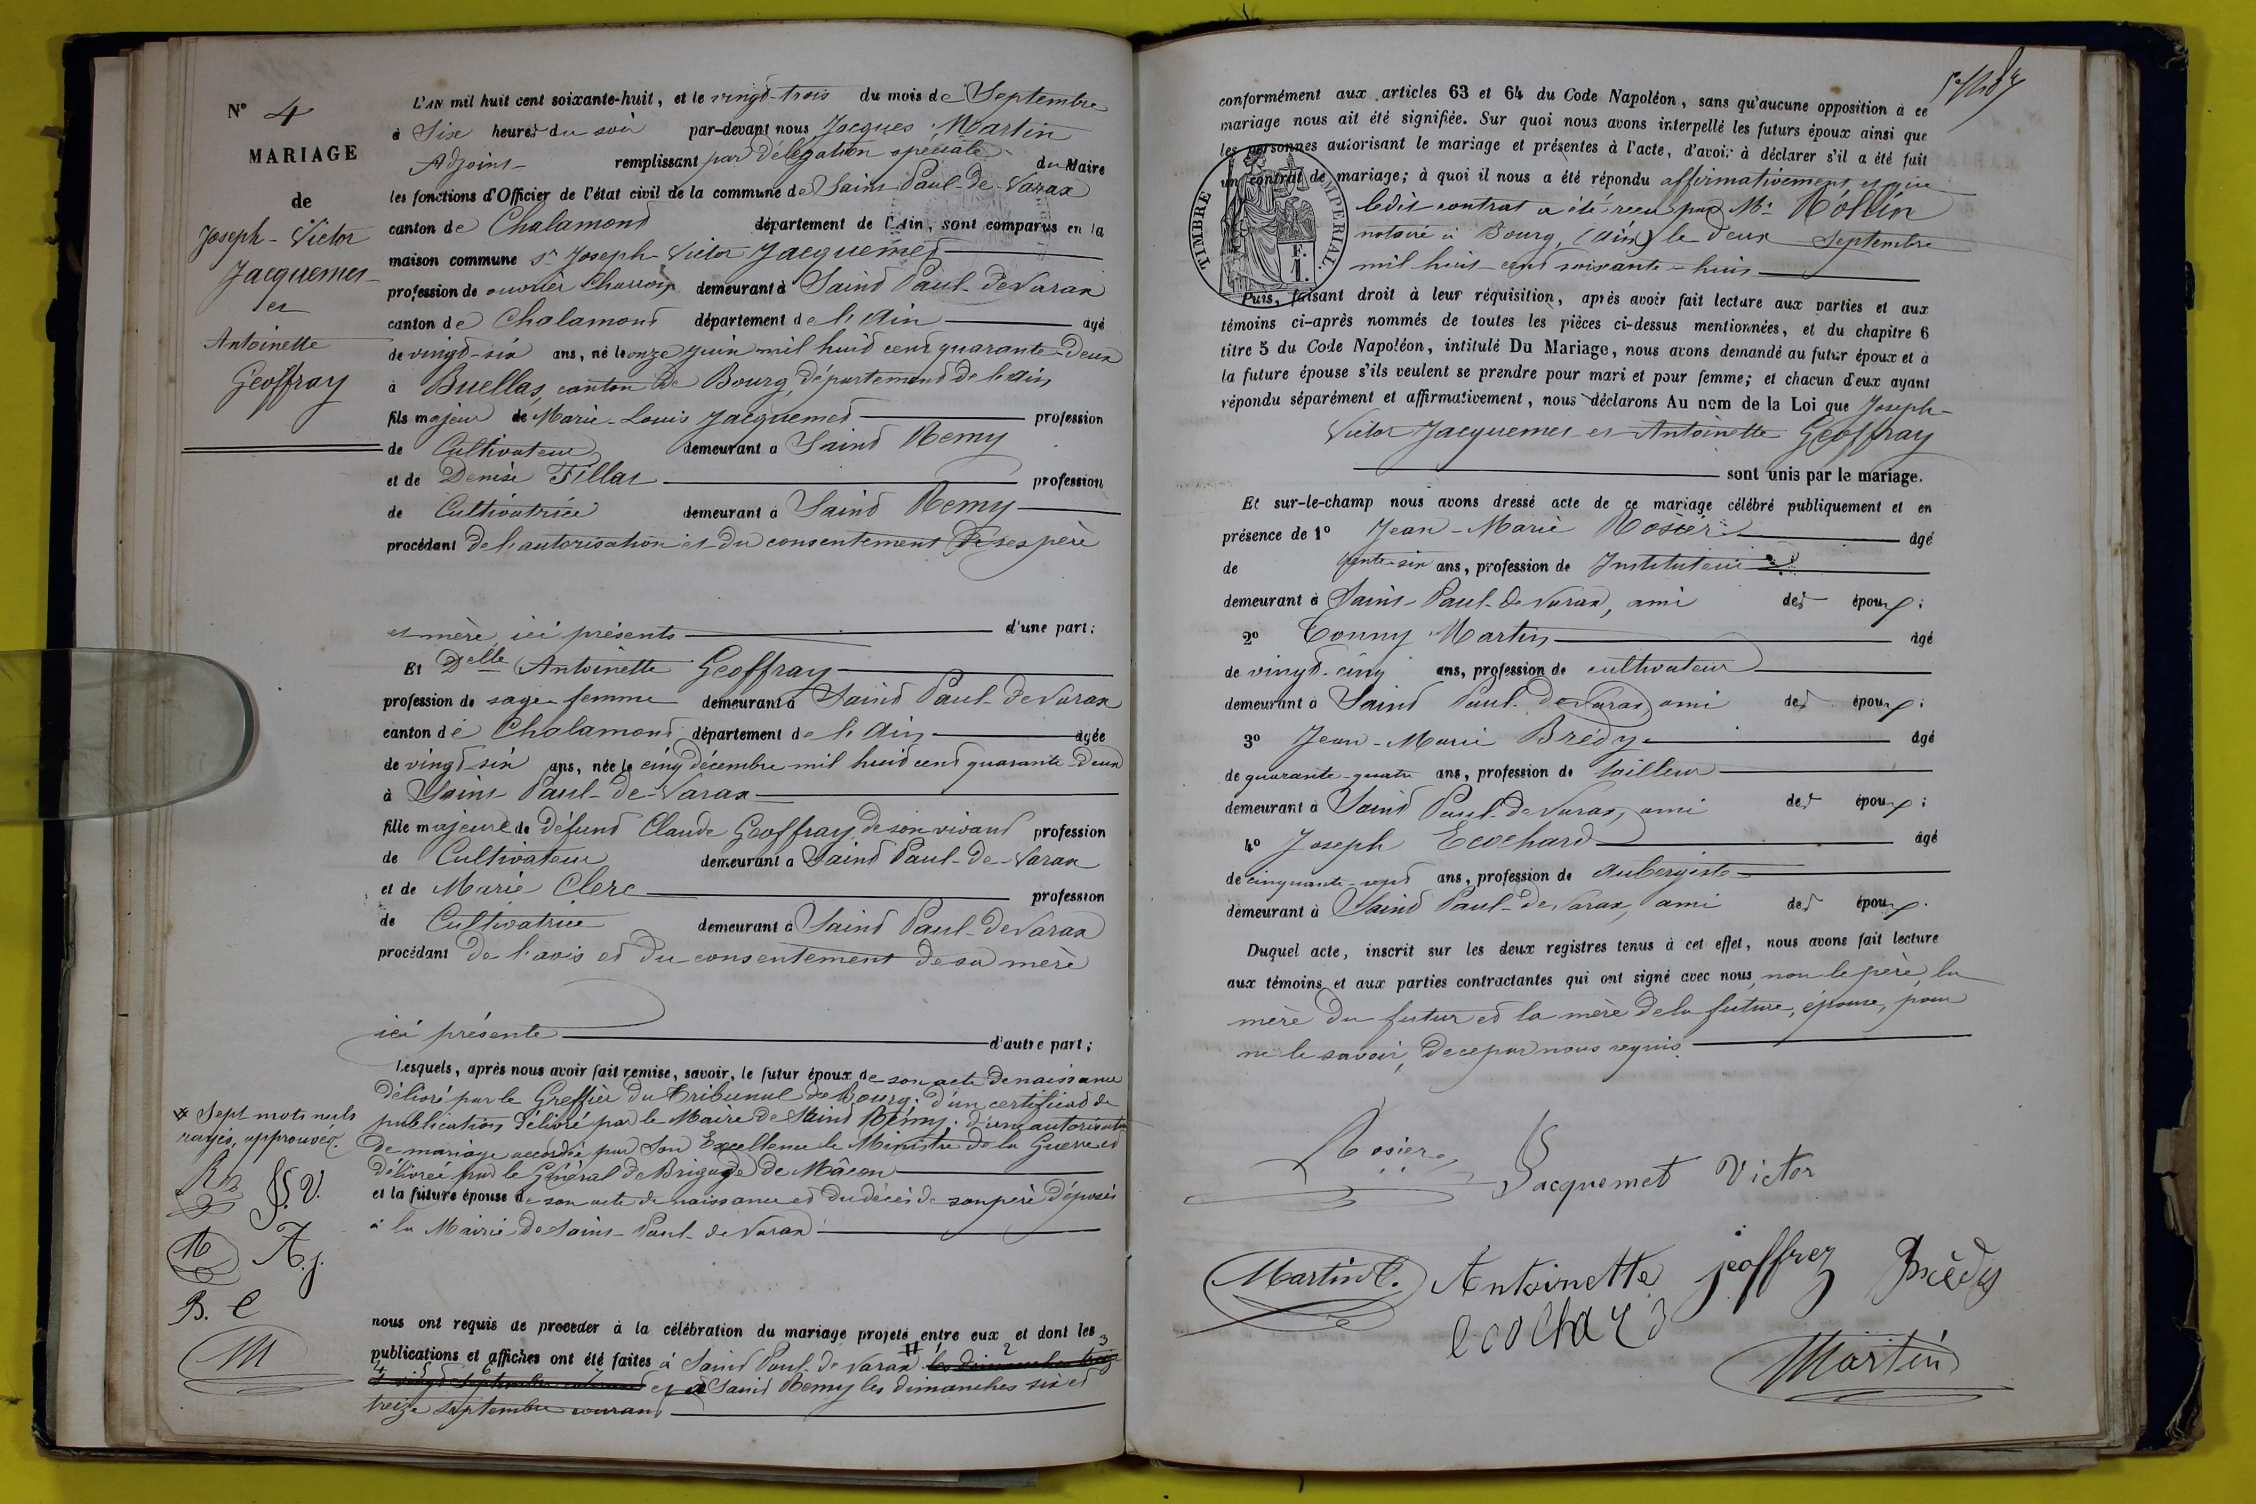 N° 4
MARIAGE
de
Joseph-Victor
Jacquemet
et
Antoinette
Geoffray
L'AN mil huit cent soixante-huit, et le vingt-trois du mois de Septembre
à Six heures du soir par-devant nous Jacques Martin
Adjoint remplissant par délégation spéciale du Maire
les fonctions d'Officier de l'état civil de la commune de Saint Paul-de-Varax
canton de Chalamont département de l'Ain, sont comparus en la
maison commune sr Joseph Victor Jacquemet
profession de ouvrier Charron demeurant à Saint Paul-de Varax
canton de Chalamont département de l'Ain âgé
de vingt-six ans, né le onze juin mil huit cent quarante-deux
à Buellas, canton de Bourg, département de l'Ain
fils majeur de Marie-Louis Jacquemet profession
de Cultivateur demeurant à Saint Remy
et de Denise Fillat profession
de Cultivatrice demeurant à Saint Remy
procédant de l'autorisation et du consentement de ses père
et mère, ici présents d'une part;
Et Delle Antoinette Geoffray
profession de sage-femme demeurant à Saint Paul-de Varax
canton de Chalamont département de l'Ain âgée
de vingt-six ans, née le cinq décembre mil huit cent quarante-deux
à Saint Paul-de-Varax
fille majeure de défunt Claude Geoffray, de son vivant profession
de Cultivateur demeurant à Saint Paul-de-Varax
et de Marie Clerc profession
de Cultivatrice demeurant à Saint Paul-de Varax
procédant de l'avis et du consentement de sa mère
ici présente d'autre part;
Lesquels, après nous avoir fait remise, savoir, le futur époux de son acte de naissance
délivré par le Greffier du Tribunal de Bourg; d'un certificat de
publication délivré par le Maire de Saint Rémy; d'une autorisation
de mariage accordée par Son Excellence le Ministre de la Guerre et
délivrée par le Général de Brigade de Mâcon
et la future épouse de son acte de naissance et du décès de son père déposés
à la Mairie de Saint-Paul-de Varax
* Sept mots nuls
rayés, approuvés.
J. V.
A. j.
B. E
M
nous ont requis de procéder à la célébration du mariage projeté entre eux et dont les
publications et affiches ont été faites à Saint Paul-de Varax # les dimanches treize
et vingt septembre courant et à Saint Remy les dimanches six et
treize septembre courant
conformément aux articles 63 et 64 du Code Napoléon, sans qu'aucune opposition à ce
mariage nous ait été signifiée. Sur quoi nous avons interpellé les futurs époux ainsi que
les personnes autorisant le mariage et présentes à l'acte, d'avoir à déclarer s'il a été fait
un contrat de mariage; à quoi il nous a été répondu affirmativement, et que
ledit contrat a été reçu par Me Rollin
notaire à Bourg, (Ain) le deux Septembre
mil huit-cent soixante-huit
TIMBRE IMPERIAL.
F.
1.
Puis, faisant droit à leur réquisition, après avoir fait lecture aux parties et aux
témoins ci-après nommés de toutes les pièces ci-dessus mentionnées, et du chapitre 6
titre 5 du Code Napoléon, intitulé Du Mariage, nous avons demandé au futur époux et à
la future épouse s'ils veulent se prendre pour mari et pour femme; et chacun d'eux ayant
répondu séparément et affirmativement, nous déclarons Au nom de la Loi que Joseph-
Victor Jacquemet et Antoinette Geoffray
sont unis par le mariage.
Et sur-le-champ nous avons dressé acte de ce mariage célébré publiquement et en
présence de 1° Jean-Marie Rosier âgé
de trente-six ans, profession de Instituteur
demeurant à Saint-Paul-de Varax, ami des époux;
2° Tonny Martin âgé
de vingt-cinq ans, profession de cultivateur
demeurant à Saint Paul-de Varax, ami des époux;
3° Jean-Marie Brédy âgé
de quarante-quatre ans, profession de tailleur
demeurant à Saint Paul-de Varax, ami des époux;
4° Joseph Ecochard âgé
de cinquante-sept ans, profession de Aubergiste
demeurant à Saint Paul-de Varax, ami des époux.
Duquel acte, inscrit sur les deux registres tenus à cet effet, nous avons fait lecture
aux témoins et aux parties contractantes qui ont signé avec nous, non le père, la
mère du futur et la mère de la future, épouse, pour
ne le savoir, de ce par nous requis.
Rosier
Jacquemet Victor
Martin t. Antoinette jeoffrez Brédy
ecochard
Martin